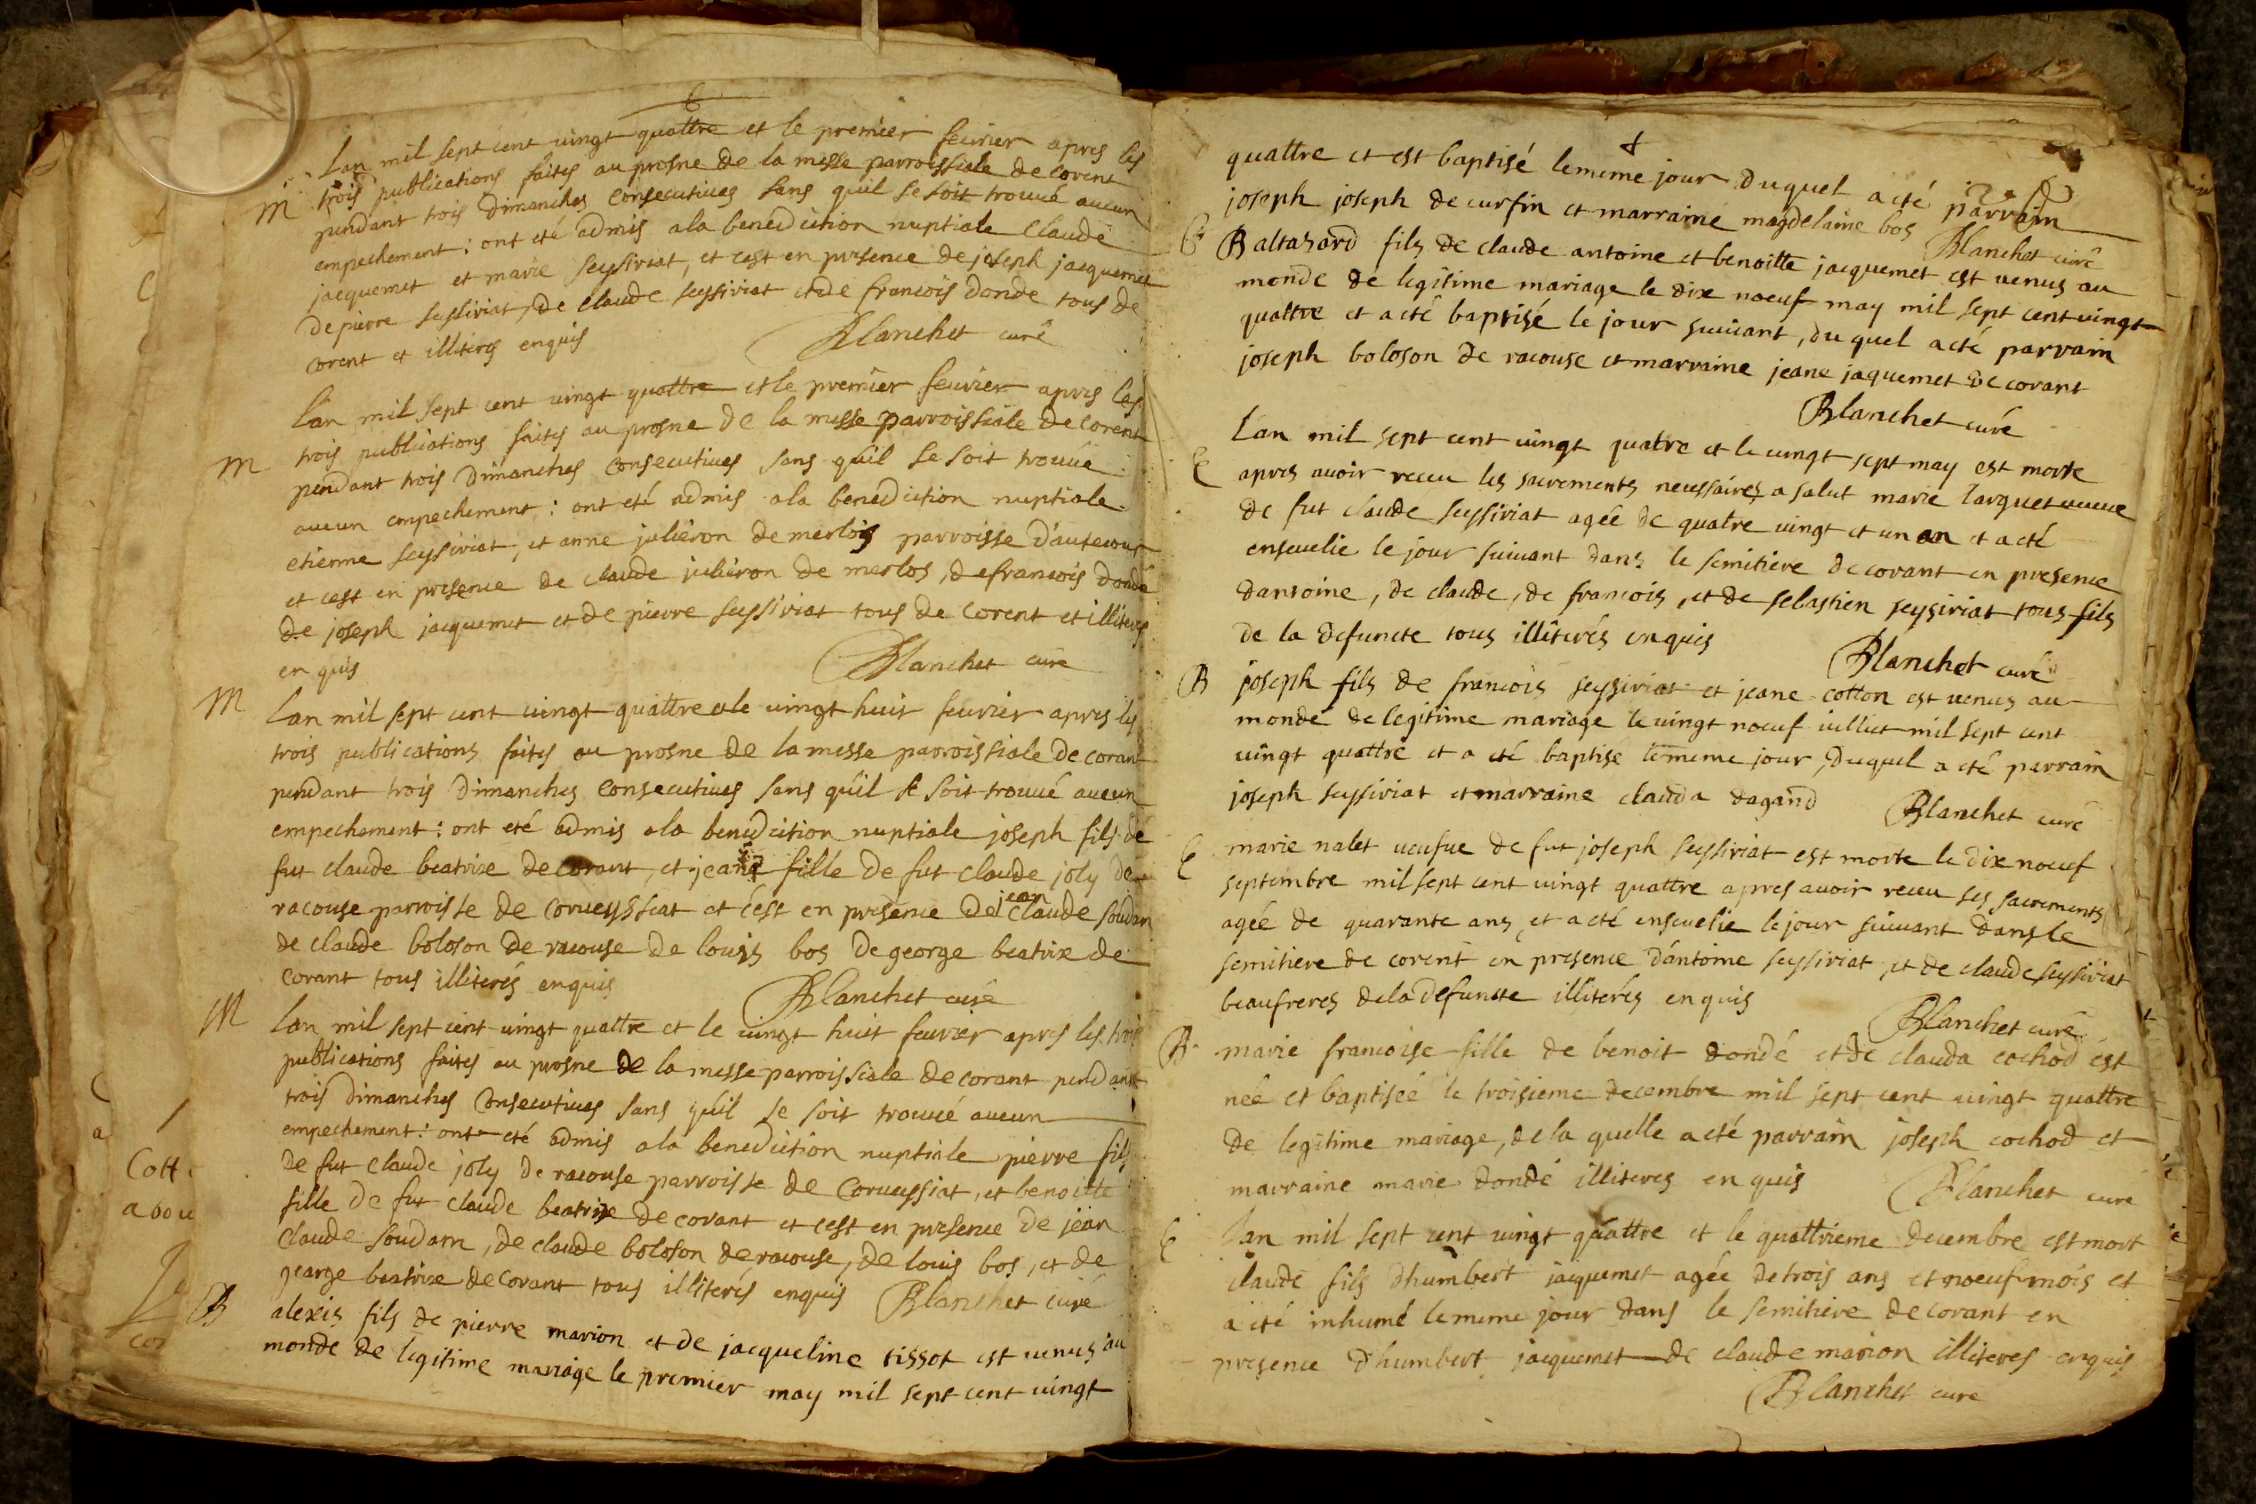 Lan mil sept cent vingt quattre et le premier fevrier apres les
M trois publications faites au prosne de la messe parroissiale de Corent
pendant trois dimanches consecutives sans quil se soit trouvé aucun
empechement : ont eté admis a la benediction nuptiale Claude
jacquemet et marie seyssiriat, et cest en presence de joseph jacquemet
de pierre seyssiriat, de claude seyssiriat et de francois dondé tous de
corent et illiteres enquis Blanchet curé
Lan mil sept cent vingt quattre et le premier fevrier apres les
M trois publications faites au prosne de la messe parroissiale de corent
pendant trois dimanches consecutives sans quil se soit trouvé
aucun empechement : ont eté admis a la benediction nuptiale
etienne seyssiriat, et anne julieron de merlos parroisse dautecour
et cest en presence de claude julieron de merlos, de francois dondé
de joseph jacquemet et de pierre seyssiriat tous de Corent et illiteres
en quis Blanchet curé
M Lan mil sept cent vingt quattre et le vingt huit fevrier apres les
trois publications faites au prosne de la messe parroissiale de corant
pendant trois dimanches consecutives sans quil se soit trouvé aucun
empechement : ont eté admis a la benediction nuptiale joseph fils de
fut claude beatrix de corant, et jeane fille de fut claude joly de
racouse parroisse de corveyssiat et cest en presence de jean claude soudan
de claude boloson de racouse de louis bos de george beatrix de
corant tous illiterés enquis Blanchet curé
M Lan mil sept cent vingt quattre et le vingt huit fevrier apres les trois
publications faites au prosne de la messe parroissiale de corant pendant
trois dimanches consecutives sans quil se soit trouvé aucun
empechement : ont eté admis a la benediction nuptiale pierre fils
de fut claude joly de racouse parroisse de Corveyssiat, et benoitte
fille de fut claude beatrix de corant et cest en presence de jean
claude soudarn, de claude boloson de racouse, de louis bos, et de
gearge beatrix de corant tous illiterés enquis Blanchet curé
B alexis fils de pierre marion et de jacqueline tissot est venus au
monde de legitime mariage le premier may mil sept cent vingt
Cott
a
quattre et est baptisé le meme jour duquel a eté parrain
joseph joseph de curfin et marraine magdelaine bos Blanchet curé
B Baltasard fils de claude antoine et benoitte jacquemet est venus au
monde de legitime mariage le dix noeuf may mil sept cent vingt
quattre et a eté baptisé le jour suivant, du quel a eté parrain
joseph boloson de racouse et marraine jeane jaquemet de corant
Blanchet curé
Lan mil sept cent vingt quatre et le vingt sept may est morte
E apres avoir receu les sacrements necessaires a salut marie larquet veuve
de fut claude seyssiriat agée de quatre vingt et un an et a eté
ensevelie le jour suivant dans le semitiere de corant en presence
dantoine, de claude, de francois, et de sebastien seysiriat tous fils
de la defuncte tous illiterés enquis Blanchet curé
B joseph fils de francois seysiriat et jeane cotton est venus au
monde de legitime mariage le vingt noeuf iulliet mil sept cent
vingt quattre et a eté baptisé le meme jour, duquel a eté parrain
joseph seyssiriat et marraine clauda dagand Blanchet curé
E marie nalet veufve de fut joseph seyssiriat est morte le dix noeuf
septembre mil sept cent vingt quattre apres avoir receu ses sacrements
agée de quarante ans, et a eté ensevelie le jour suivant dans le
semitiere de corent en presence dantoine seyssiriat et de claude seysiriat
beaufreres de la defuncte illiterés enquis Blanchet curé
B marie francoise fille de benoit dondé et de clauda cochod est
née et baptisée le troisieme decembre mil sept cent vingt quattre
de legitime mariage, de la quelle a eté parrain joseph cochod et
marraine marie dondé illiteres en quis Blanchet curé
E Lan mil sept cent vingt quattre et le quattrieme decembre est mort
claude fils dhumbert jacquemet agée de trois ans et noeuf mois et
a eté inhumé le meme jour dans le semitiere de corant en
presence dhumbert jacquemet de claude marion illiteres enquis
Blanchet curé